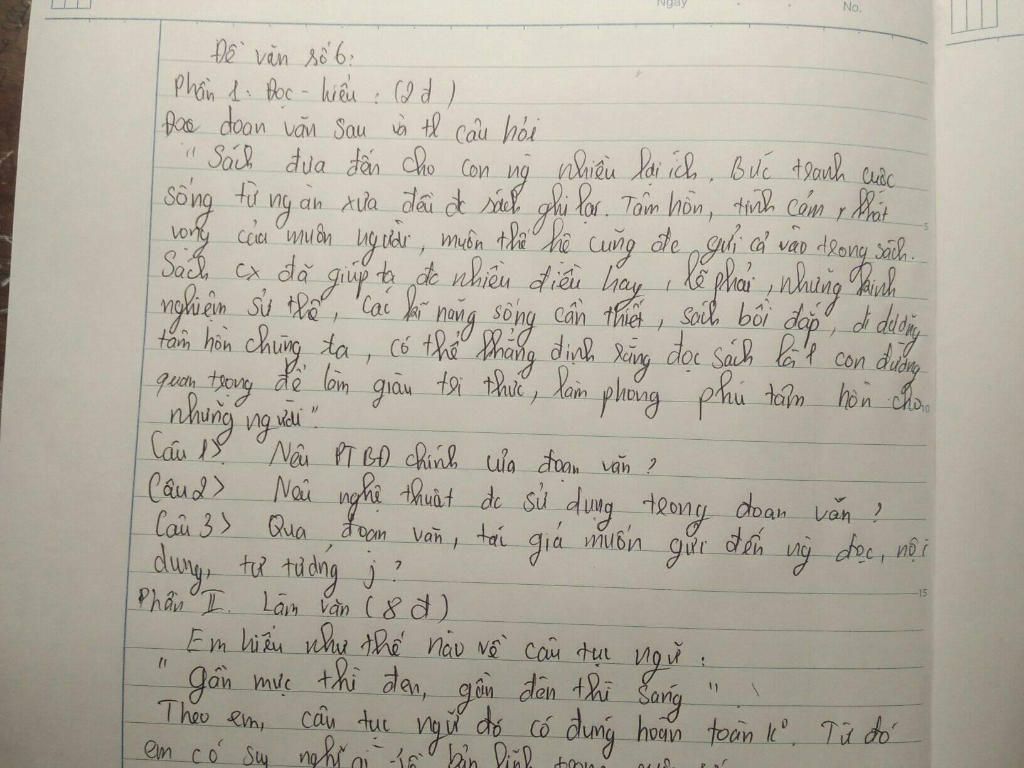 Ngày
No.
Đề văn số 6:
Phần 1. Đọc - hiểu : (2 đ)
Đọc đoạn văn sau và tl câu hỏi
" Sách đưa đến cho con ng nhiều lợi ích. Bức tranh cuộc
sống từ ngàn xưa đều đc sách ghi lại. Tâm hồn, tình cảm, khát
vọng của muôn người, muôn thế hệ cũng đc gửi cả vào trong sách.
5
Sách cx đã giúp ta đc nhiều điều hay, lẽ phải, những kinh
nghiệm sử thế, các kĩ năng sống cần thiết, sách bồi đắp, di dưỡng
tâm hồn chúng ta, có thể khẳng định rằng đọc sách là 1 con đường
quan trọng để làm giàu tri thức, làm phong phú tâm hồn cho
10
những người".
Câu 1> Nêu PTBĐ chính của đoạn văn ?
Câu 2> Nêu nghệ thuật đc sử dụng trong đoạn văn ?
Câu 3> Qua đoạn văn, tác giả muốn gửi đến ng đọc, nội
dung, tư tưởng j ?
15
Phần II. Làm văn (8 đ)
Em hiểu như thế nào về câu tục ngữ :
" Gần mực thì đen, gần đèn thì sáng "
Theo em, câu tục ngữ đó có đúng hoàn toàn k°. Từ đó
em có suy nghĩ gì về bản lĩnh trong